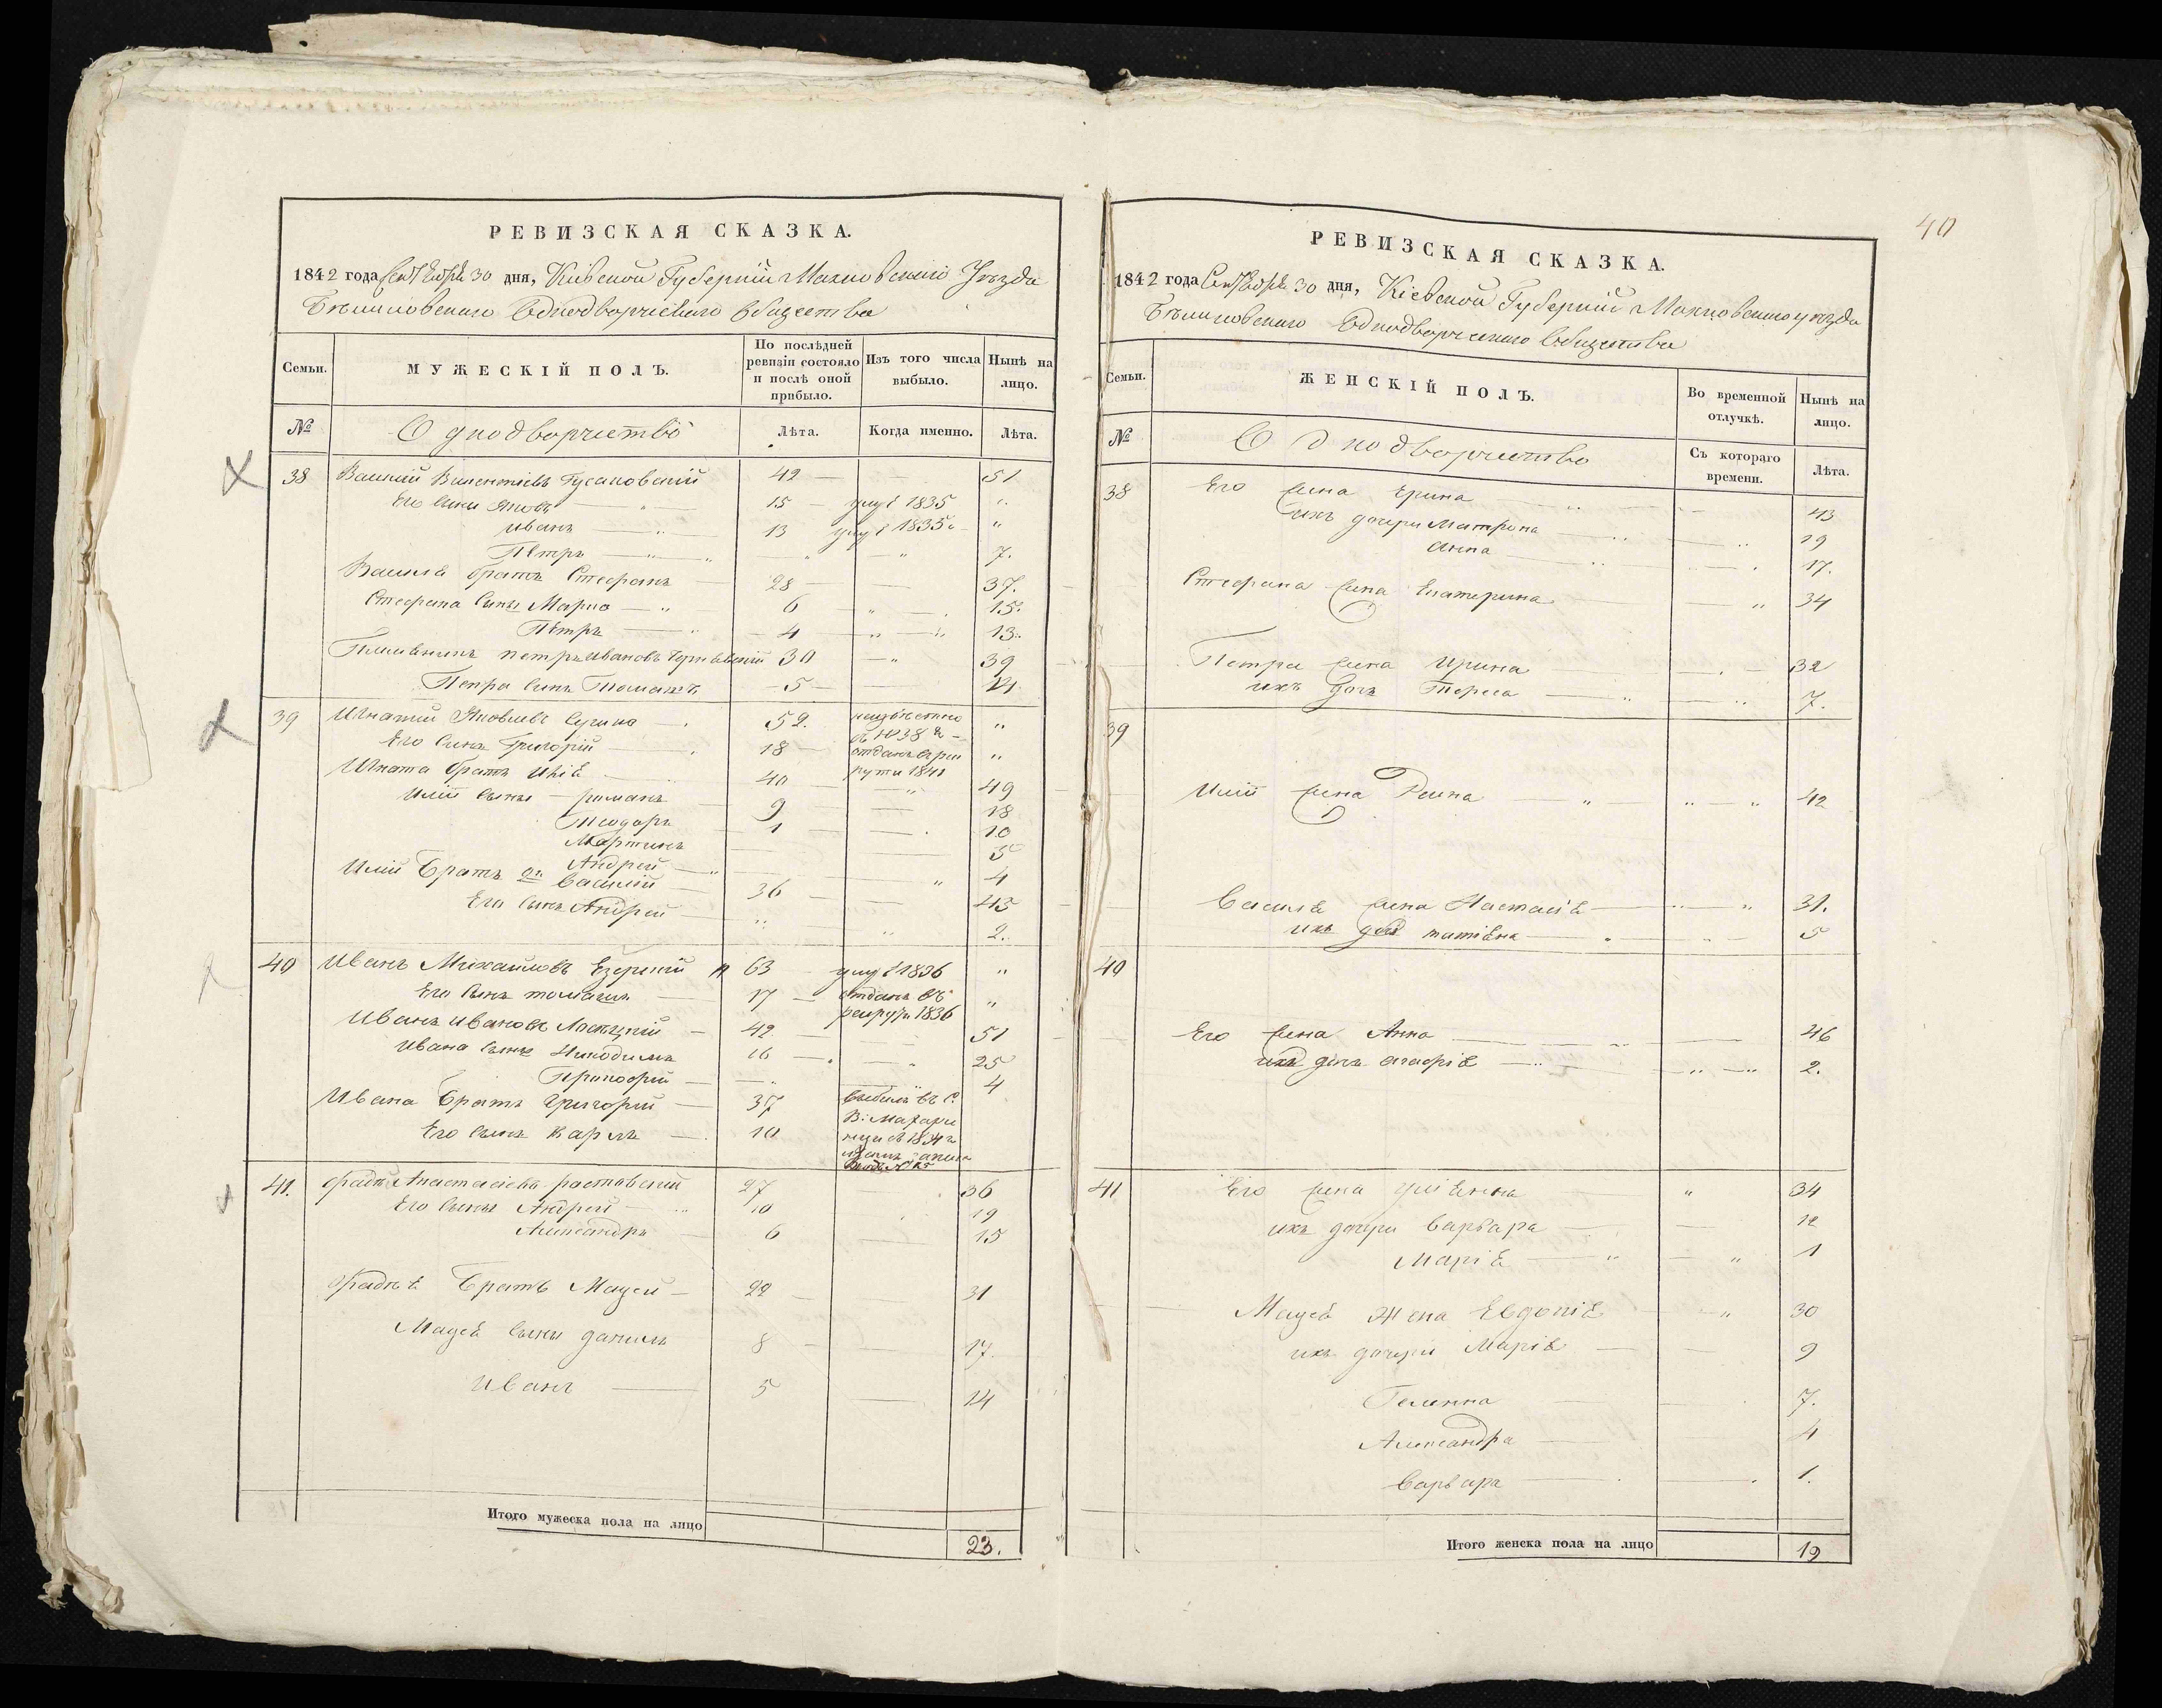 40
РЕВИЗСКАЯ СКАЗКА.
1842 года Сентября 30 дня, Кіевской Губерніи Махновскаго Уѣзда
Однодворческаго Общества
Семьи. МУЖЕСКІЙ ПОЛЪ. По послѣдней ревизіи состояло и послѣ оной прибыло. Изъ того числа выбыло. Нынѣ на лицо.
№ Однодворчество Лѣта. Когда именно. Лѣта.
38 Василій Викентіевъ Гусаковскій 42 51
Его сыны Яковъ 15 1835 "
иванъ 13 1835 "
Петръ " " 7.
Василія братъ Стефанъ 28 37.
Стефана сыны Марко 6 " 15.
Петръ 4 " 13.
петръ Ивановъ 30 " 39
Петра сынъ Томашъ 5
39 Игнатій Яковлевъ 52. неизвѣстно "
въ 1838 г
Его сынъ Григорій 18 отданъ в рек "
руты 1841
Игната братъ Илія 40 " 49
Иліи сыны романъ 9 18
Теодоръ 1 10
Мартинъ 5
Андрей 4
Иліи Братъ 2й Василій 36 " 43
Его сынъ Андрей " " 2.
40 Иванъ Михайловъ Езерскій 63 1836 "
Его сынъ томашъ 17 отданъ въ "
рекруты 1836
Иванъ Ивановъ 42 51
Ивана сынъ Никодимъ 16 " 25
Прокофій " 4
Ивана Братъ Григорій 37 выбылъ въ с.
Его сынъ Карлъ 10
41. Анастасіевъ 27 36
Его сыны Андрей 10 19
Александръ 6 15
Братъ Мацей 22 31
Мацея сыны данилъ 8 17.
Иванъ 5 14
Итого мужеска пола на лицо 23.
РЕВИЗСКАЯ СКАЗКА.
1842 года Сентября 30 дня, Кіевской Губерніи Махновскаго уѣзда
Однодворческаго Общества
Семьи. ЖЕНСКІЙ ПОЛЪ. Во временной отлучкѣ. Нынѣ на лицо.
№ Однодворчество Съ котораго времени. Лѣта.
38 Его жена Ерина 43
ихъ дочери Матрона " 19
анна 17.
Стефана жена Екатерина " 34
Петра жена Ирина 32
ихъ дочь Тереса " 7.
39
Иліи жена " " " 42
Василя жена Настасія " " 31.
ихъ дочь татіяна " " 5
40
Его жена Анна " 46
ихъ дочь агафія " " 2.
41 Его жена уліянна " 34
ихъ дочери варвара 12
Марія " " 1
Мацея жена Евдокія " 30
ихъ дочери Марія 9
Геленна 7.
Александра 4
варвара 1.
Итого женска пола на лицо 19